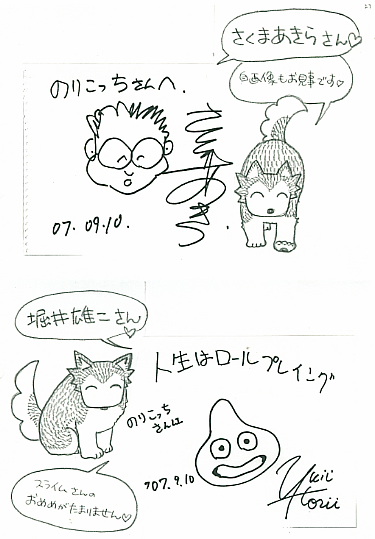 さくまあきらさん♡
自画像もお見事です♡
のりこっちさんへ.
07. 09. 10.
堀井雄二さん
♡
人生はロールプレイング
のりこっち
さんは
スライムさんの
おめめがたまりません♡
'07. 9. 10
Yuji
Horii